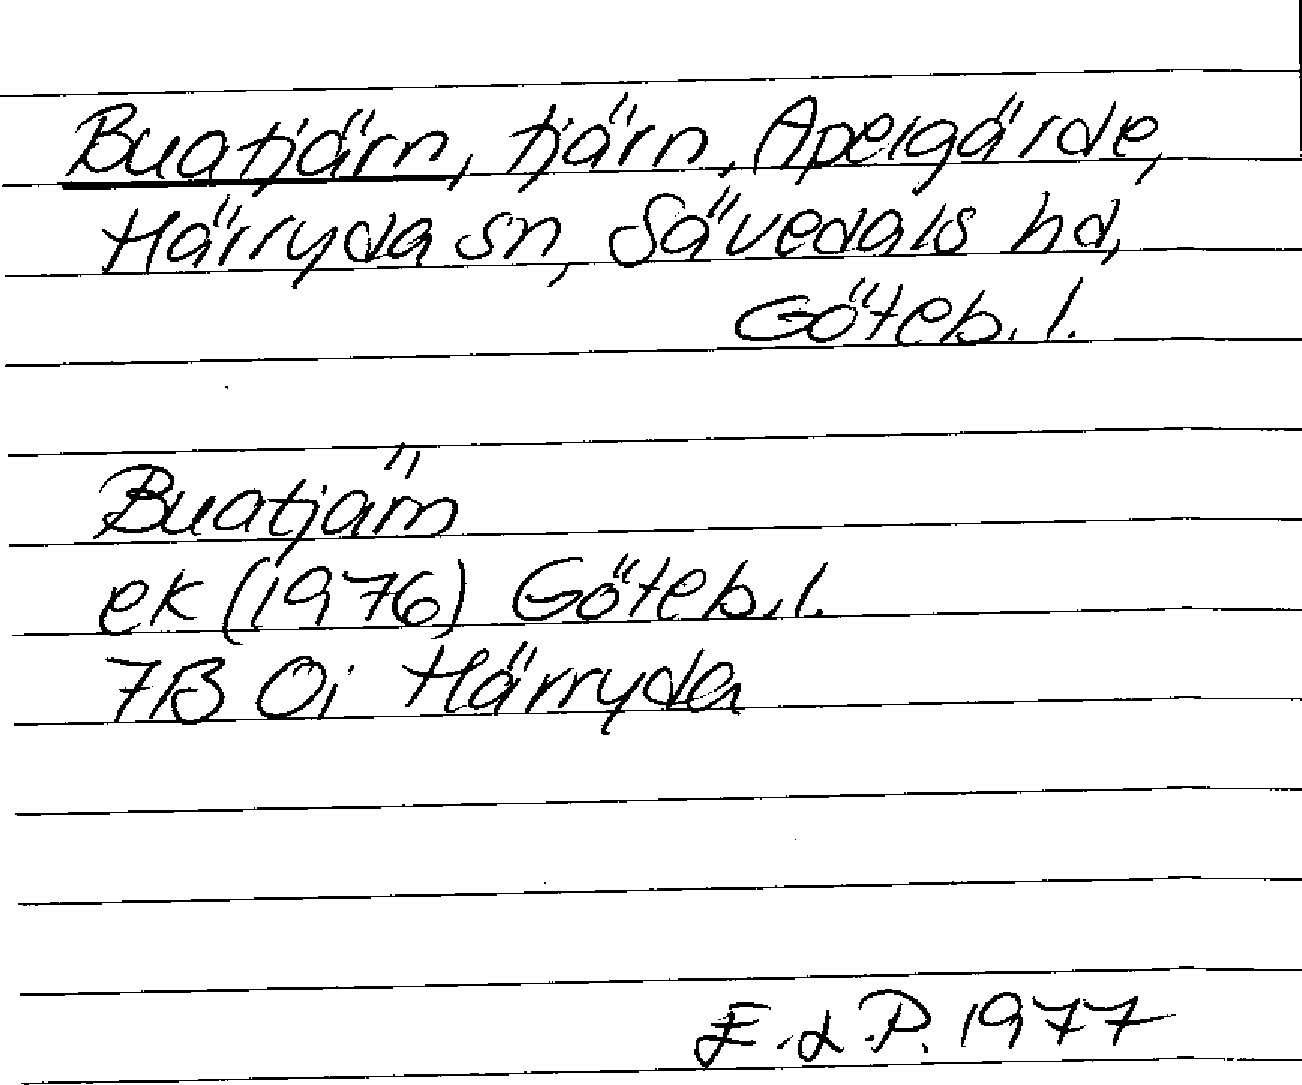 Buatjärn, tjärn, Apelgärde,
Härryda sn, Sävedals hd,
Göteb. l.
Buatjärn
ek (1976) Göteb. l.
7B 0i Härryda